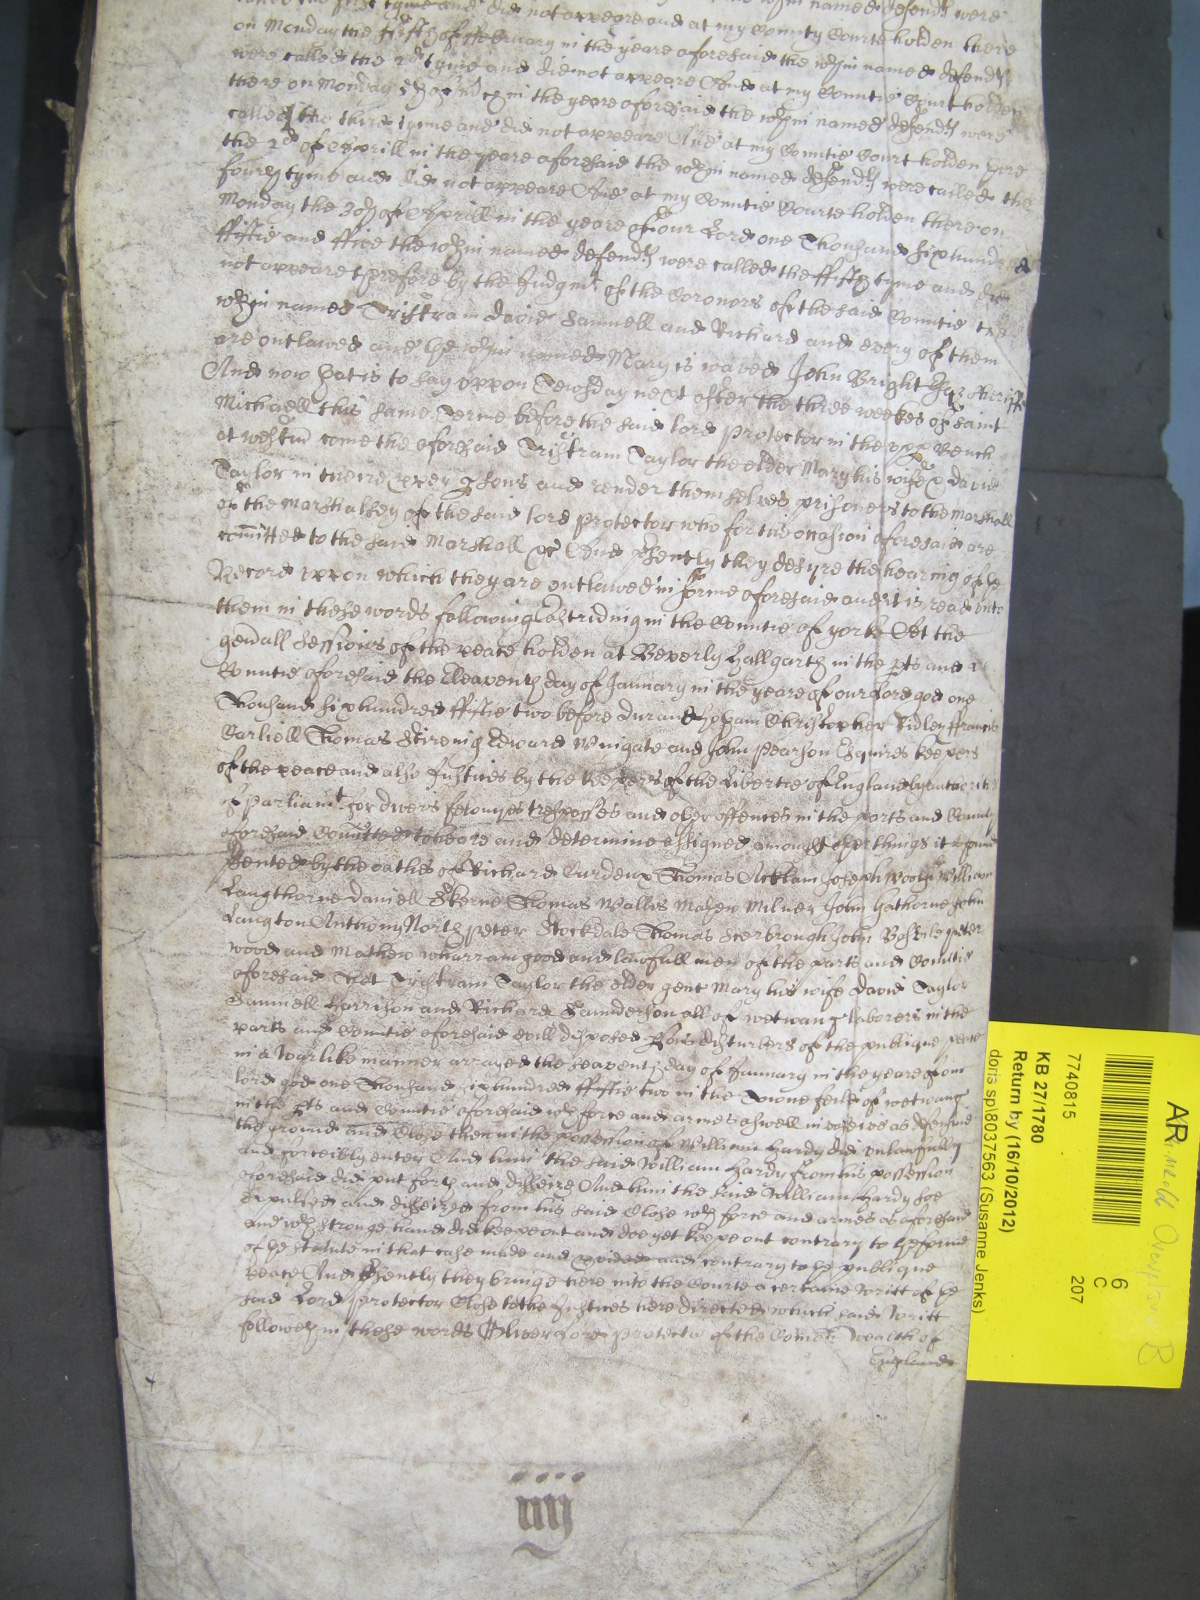 called the first tyme and did not appeare and at my County Courte holden there
on Monday the fifth of ffebruary in the yeare aforesaid the wthin named defendts
were called the 2d tyme and did not appeare And at my Countie Court holden
there on Monday in the yeare aforesaid the wthin named defendts were
called the third tyme and did not appeare And at my Countie Court holden there
the 2d of Aprill in the yeare aforesaid the wthin named defendts were called the
fourth tyme and did not appeare And at my Countie Courte holden there on
Monday the 30th of Aprill in the yeare of our Lord one Thousand six hundred
ffiftie and ffive the wthin named defendts were called the ffifth tyme and did
not appeare therefore by the Judgmt of the Coronors of the said Countie the
wthin named Tristram David Samuell and Richard and every of them
are outlawed and the wthin named Mary is waved John Bright Esqr Sheriffe
And now that is to say uppon Tewsday next after the three weekes of Saint
Michaell this same Terme before the said lord Protector in the upp Bench
at Westmr come the aforesaid Tristram Taylor the elder Mary his wife & David
Taylor in theire proper psons and render themselves prisoners to the Marshall
of the Marshalsey of the said lord Protector who for the occasion aforesaid are
comitted to the said Marshall &c And psently they desyre the hearing of the
Record uppon which they are outlawed in forme aforesaid and it is read unto
them in these words following Estriding in the Countie of yorke Att the
genall Sessions of the peace holden at Beverly Hallgarth in the pts and
Countie aforesaid the Eleaventh day of January in the yeare of our Lord god one
Thousand six hundred ffiftie two before Durand Hotham Christopher Ridley ffrancis
Carliell Thomas Stireing Edward Wingate and John Pearson Esquires keepers
of the peace and also Justices by the Keepers of the Libertie of England by authoritie
of Parliamt for divers felonyes trespasses and other offences in the parts and County
aforesaid Comitted to heare and determine assigned amongst other things it
psented by the oaths of Richard Thomas Acklam Joseph William
Langthorne Daniell Skerne Thomas Wallis Mathew Milner John Hathorne John
Langton Anthony North Peter Stockdale Thomas Scerbrough John Peter
wood and Mathew Wharram good and lawfull men of the parts and Countie
aforesaid That Tristram Taylor the elder gent Mary his wife David Taylor
Samuell Harrison and Richard Saunderson all of Wetwang laborers in the
parts and Countie aforesaid evill disposed psons disturbers of the publique peace
in a Warlike manner arrayed the seaventh day of January in the yeare of our
lord god one Thousand six hundred ffiftie two in the Towne feild of wetwang
in the pts and Countie aforesaid wth force and armes aswell invasive as defensive
the ground and Close then in the possession of William Hardy did unlawfully
and forceibly enter And him the said William Hardy from his possession
aforesaid did put forth and disseise And him the said William Hardy soe
expulsed and disseized from his said Close wth force and armes as aforesaid
and wth stronge hand did keepe out and doe yet keepe out contrary to the forme
of the Statute in that case made and pvided and contrary to the publique
peace And psently they bringe here into the Courte a certaine Writt of the
said Lord Protector Close to the Justices here directed which said Writt
followeth in these words Oliver Lord Protector of the Comon Wealth of
England
iiij
AR
7740815
KB 27/1780
Return by (16/10/2012)
doris sp\8037563 (Susanne Jenks)
6
C
207